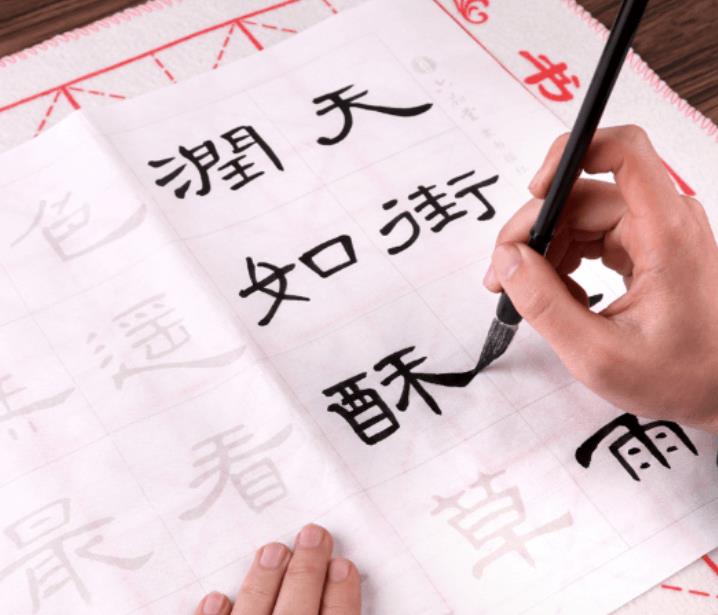 天街雨
潤如酥草
色遙看
最
书